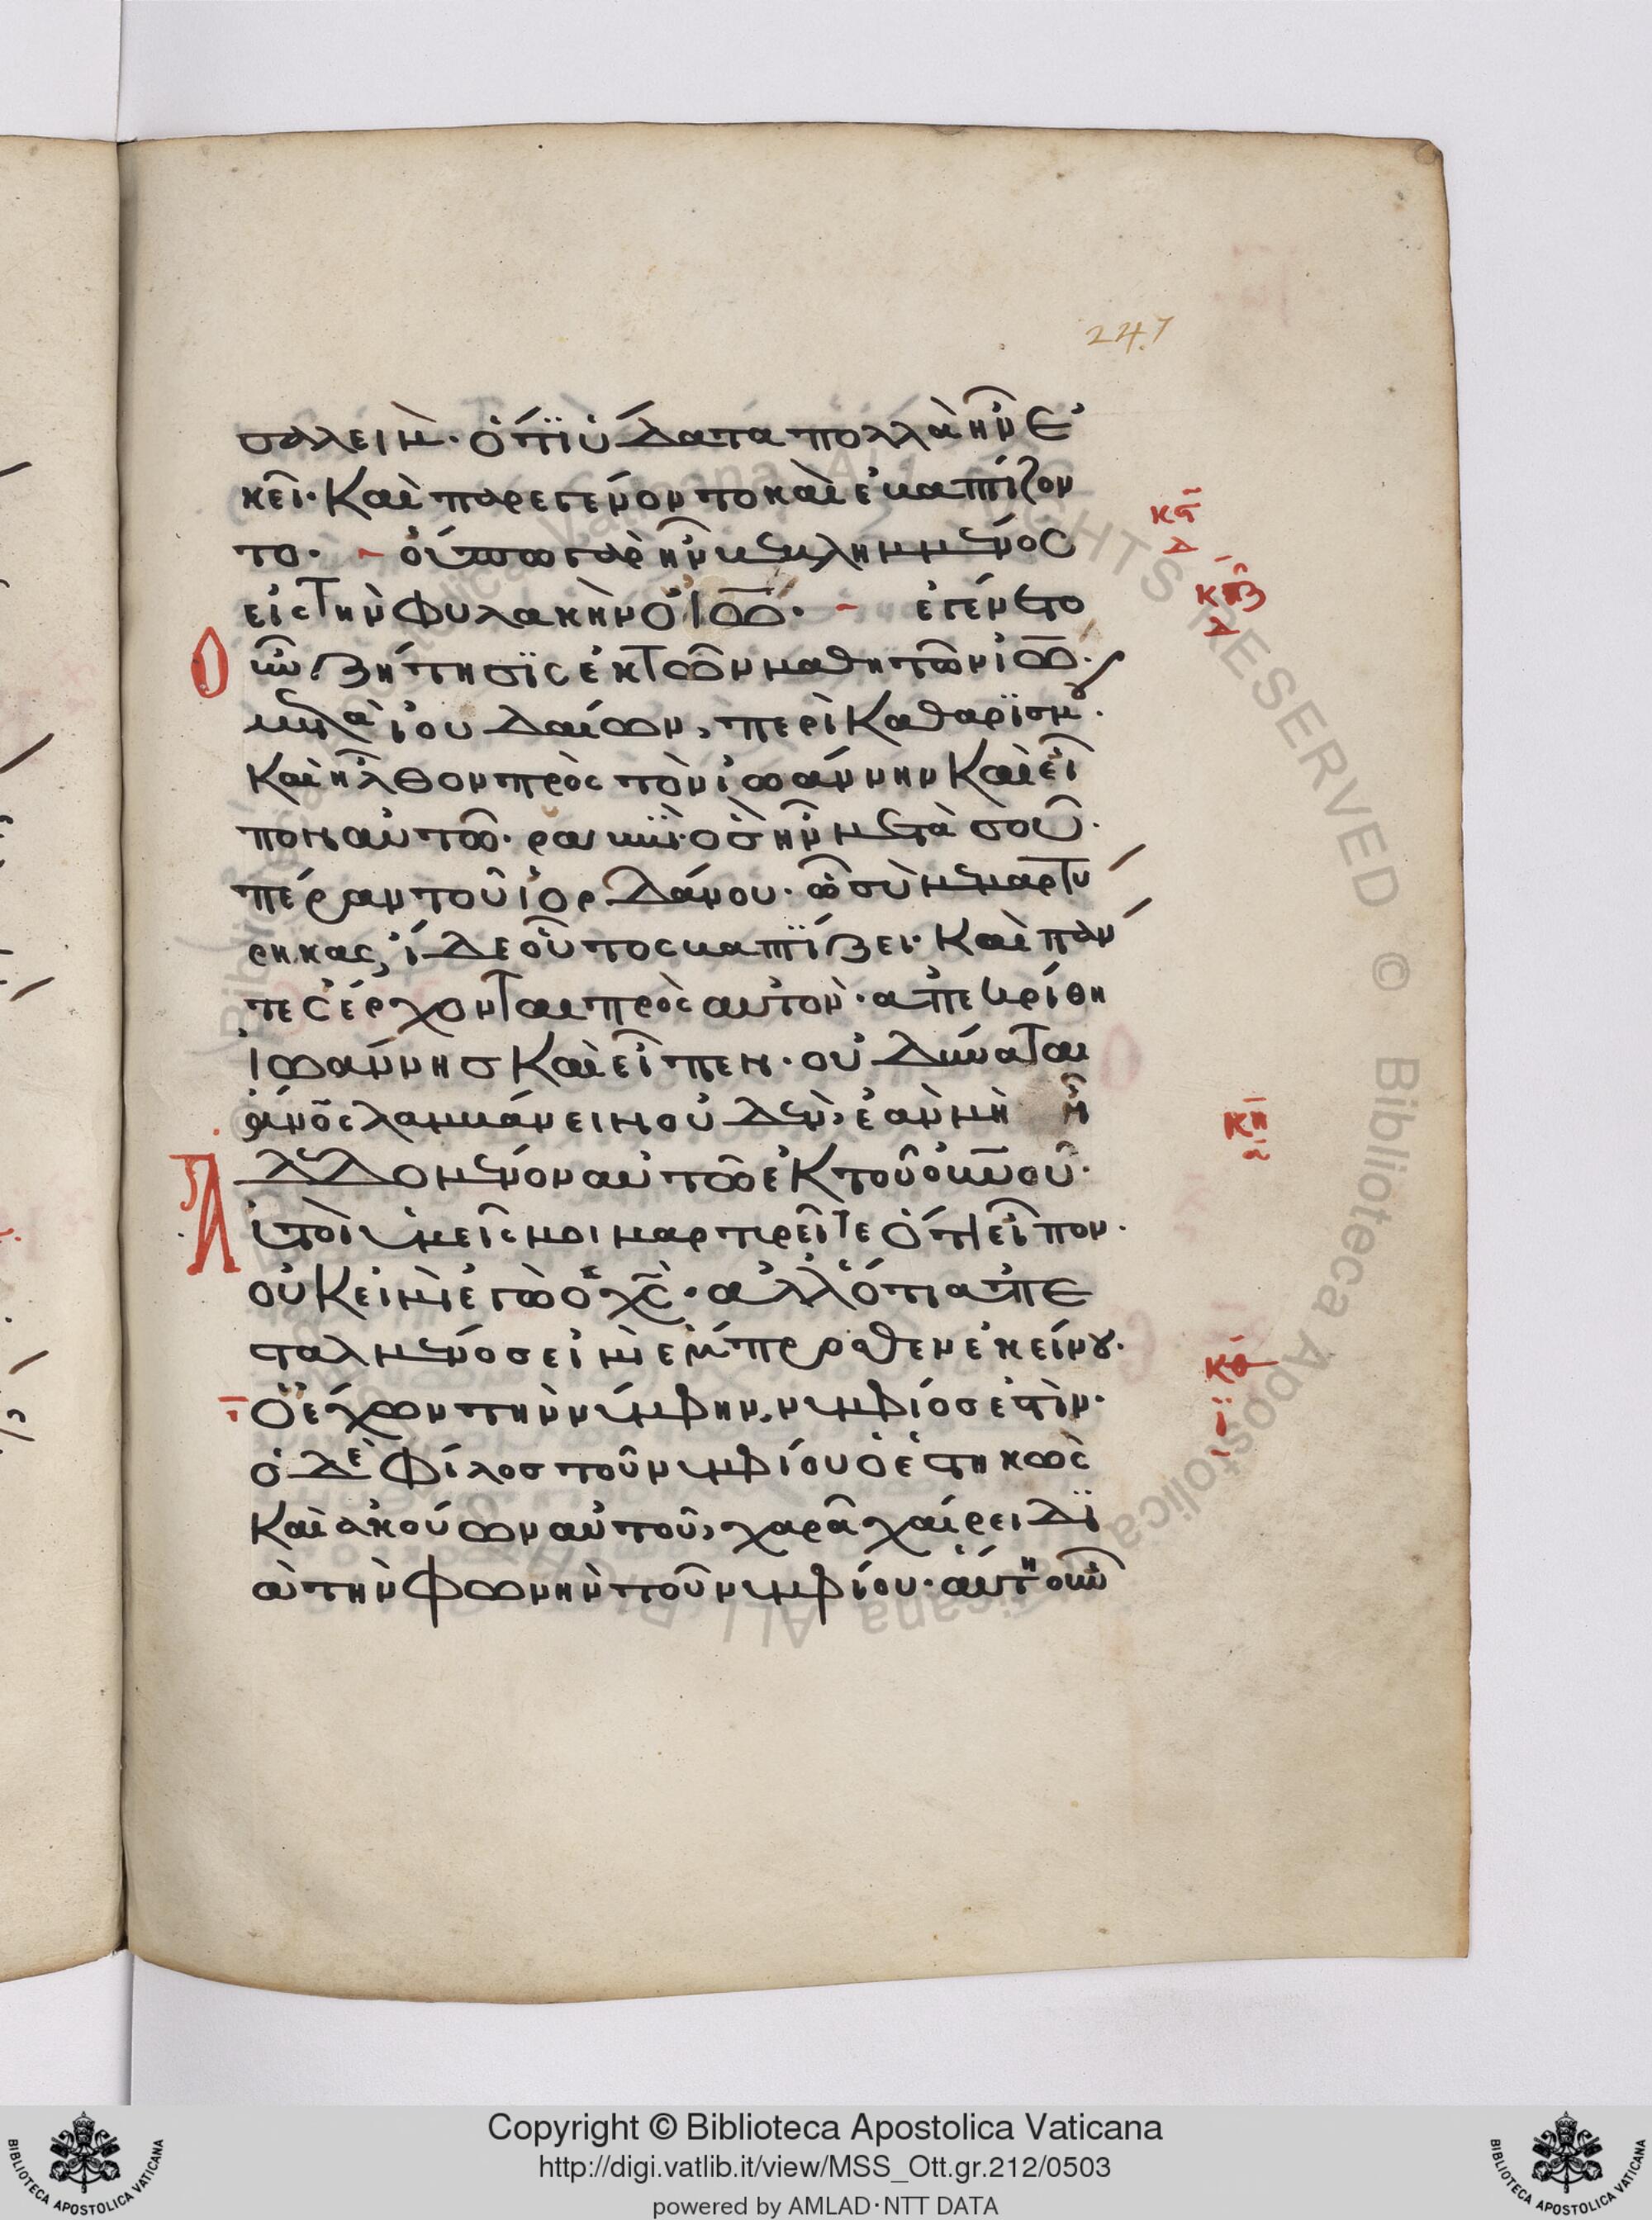 247
σαλείμ· ὅτι ὕδατα πολλὰ ἦν ἐ
κεῖ· Καὶ παρεγένοντο καὶ ἐβαπτίζον
το· οὔπω γὰρ ἦν βεβλημμένος
εἰς τὴν φυλακὴν ὁ ἰω· ἐγένετο
οὖν ζήτησις ἐκ τῶν μαθητῶν ἰω·
μετὰ ἰουδαίων, περὶ Καθαρϊσμοῦ·
Καὶ ἦλθον πρὸς τὸν ἰωάννην Καὶ εἶ
πον αὐτῶ· ραββϊ· ὃς ἦν μετὰ σοῦ·
πέραν τοῦ ἰορδάνου· ῶ σὺ μεμαρτυ
ρηκας, ἴδε οὗτος βαπτίζει· Καὶ πάν
τες ἔρχονται πρὸς αὐτὸν· ἀπεκρίθη
ἰωάννησ Καὶ εἶπεν· οὐ δύναται
ἄνος λαμβάνειν οὐδὲν, ἐὰν μὴ ἦ
δεδομένον αὐτῶ ἐκ τοῦ οὐνοῦ·
Αὐτοὶ ὑμεῖς μοι μαρτυρεῖτε ὅτι εἶπον·
οὐκ εἰμὶ ἐγὼ ὁ χς· ἀλλ' ὅτι ἀπε
σταλμένοσ εἰμὶ ἔμπροσθεν ἐκείνου·
Ὁ ἔχων τὴν νύμφην, νυμφίοσ ἐστὶν·
ὁ δὲ φίλοσ τοῦ νυμφίου ὁ ἑστηκὼς
Καὶ ἀκούων αὐτοῦ, χαρᾶ χαίρει δϊ
ὰ τὴν φωνὴν τοῦ νυμφίου· αὕτη οὖν
κϛ
δ
κζ
δ
κη
α
κθ
ι
Copyright © Biblioteca Apostolica Vaticana
http://digi.vatlib.it/view/MSS_Ott.gr.212/0503
powered by AMLAD·NTT DATA
BIBLIOTECA APOSTOLICA VATICANA
BIBLIOTECA APOSTOLICA VATICANA